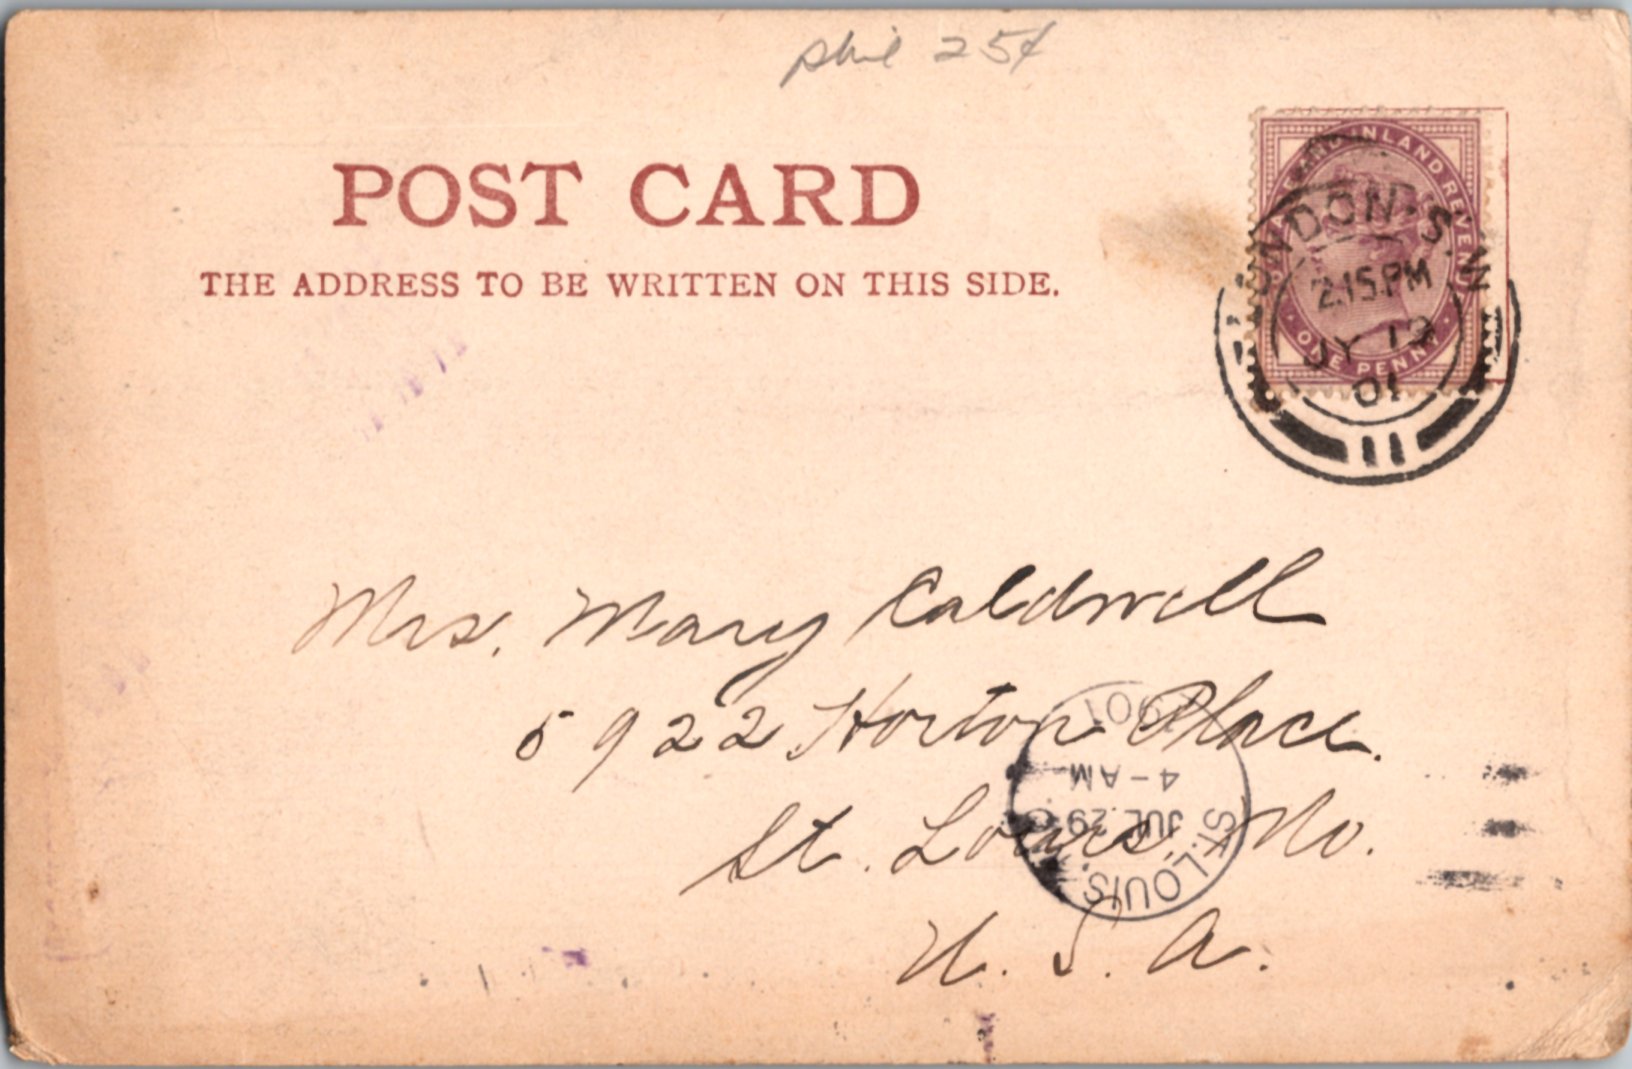 phil 25¢
POST CARD
THE ADDRESS TO BE WRITTEN ON THIS SIDE.
AND INLAND REVENUE
ONE PENNY
LONDON. S.W
2.15.PM
JY 12
01
11
Mrs. Mary Caldwell
5922 Horton Place.
St. Louis Mo.
U. S. A.
ST. LOUIS.
JUL 29
4-AM
1901